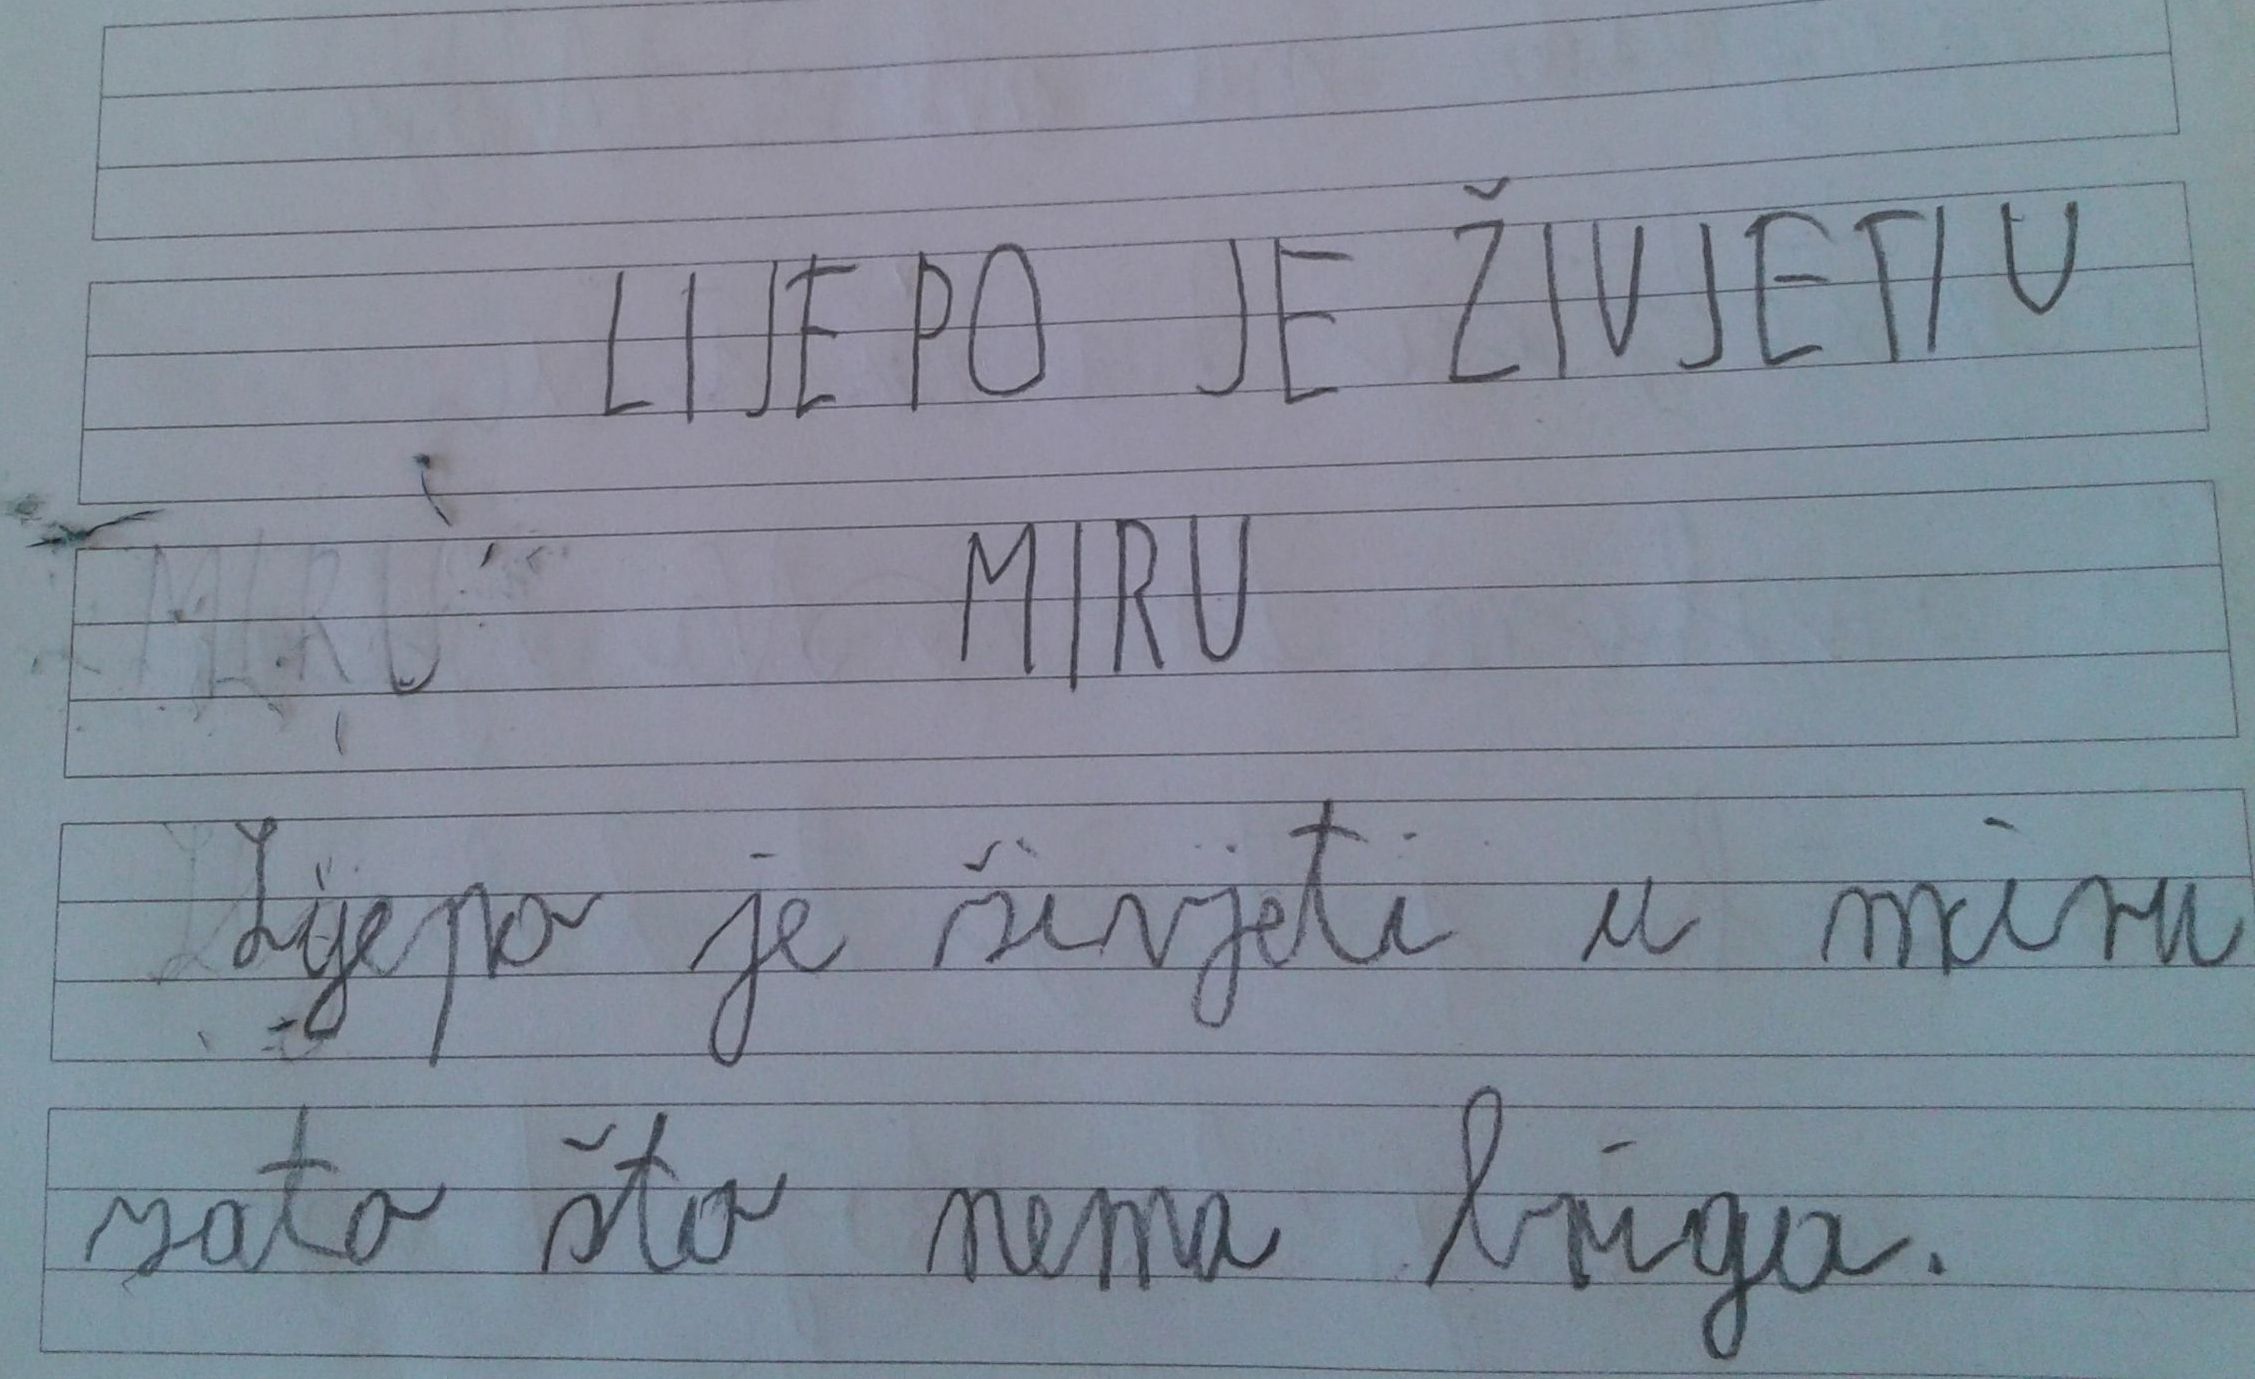 LIJEPO JE ŽIVJETI U
MIRU
Lijepo je živjeti u miru
zato što nema briga.